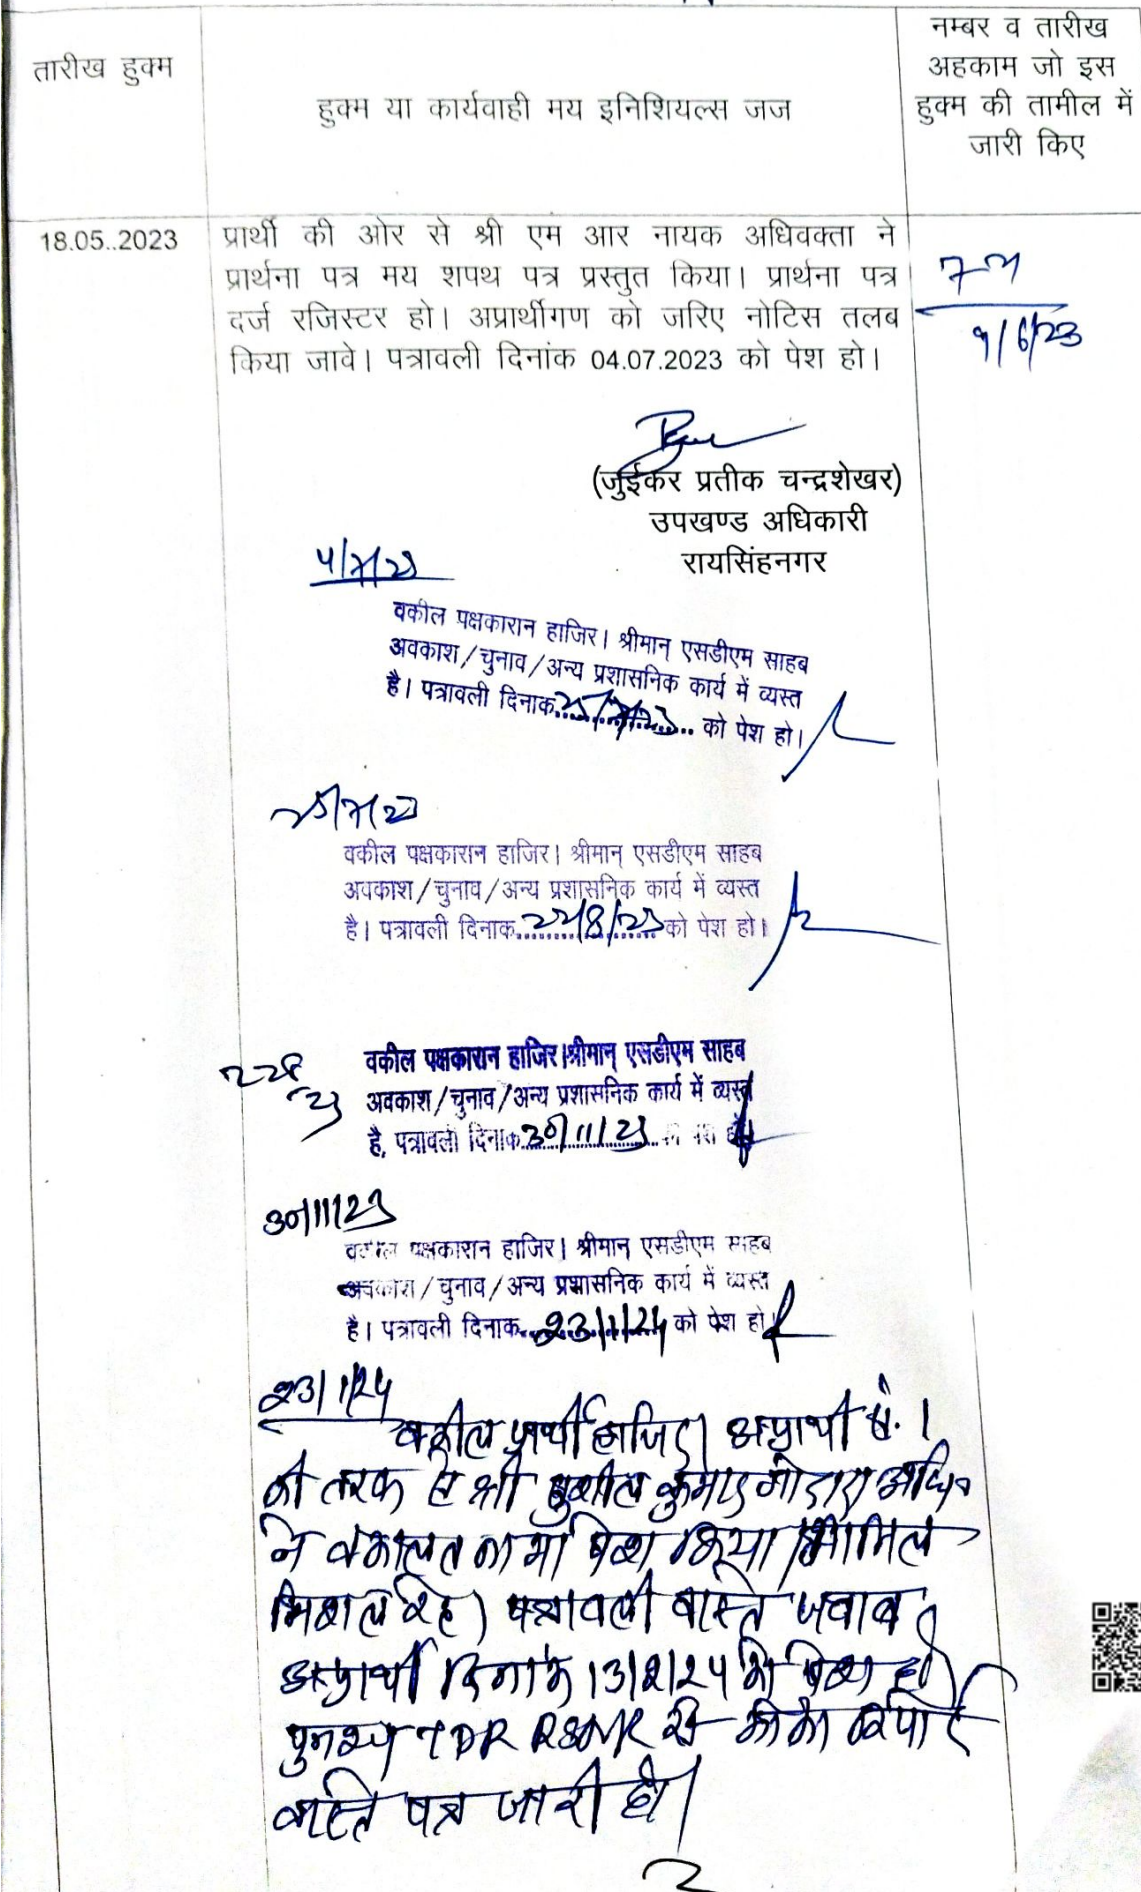 तारीख हुक्म
हुक्म या कार्यवाही मय इनिशियल्स जज
नम्बर व तारीख
अहकाम जो इस
हुक्म की तामील में
जारी किए
18.05..2023
प्रार्थी की ओर से श्री एम आर नायक अधिवक्ता ने
प्रार्थना पत्र मय शपथ पत्र प्रस्तुत किया। प्रार्थना पत्र
दर्ज रजिस्टर हो। अप्रार्थीगण को जरिए नोटिस तलब
किया जावे। पत्रावली दिनांक 04.07.2023 को पेश हो।
9/6/23
(जुईकर प्रतीक चन्द्रशेखर)
उपखण्ड अधिकारी
रायसिंहनगर
4/7/23
वकील पक्षकारान हाजिर। श्रीमान् एसडीएम साहब
अवकाश/चुनाव/अन्य प्रशासनिक कार्य में व्यस्त
है। पत्रावली दिनाक 25/7/23 को पेश हो।
25/7/23
वकील पक्षकारान हाजिर। श्रीमान् एसडीएम साहब
अवकाश/चुनाव/अन्य प्रशासनिक कार्य में व्यस्त
है। पत्रावली दिनाक 22/8/23 को पेश हो।
22/8/23
वकील पक्षकारान हाजिर।श्रीमान् एसडीएम साहब
अवकाश/चुनाव/अन्य प्रशासनिक कार्य में व्यस्त
है, पत्रावली दिनाक 30/11/23 को पेश हो
30/11/23
वकील पक्षकारान हाजिर। श्रीमान् एसडीएम साहब
अवकाश/चुनाव/अन्य प्रशासनिक कार्य में व्यस्त
है। पत्रावली दिनाक 23/1/24 को पेश हो।
23/1/24
वकील प्रार्थी हाजिर। अप्रार्थी सं. 1
की तरफ से श्री सुशील कुमार गोदारा अधि०
ने वकालत नामा पेश किया। शामिल
मिशल रहे। पत्रावली वास्ते जवाब
अप्रार्थी दिनांक 13/2/24 को पेश हो।
पुनश्च TDR को रिपोर्ट
वास्ते पत्र जारी हो।